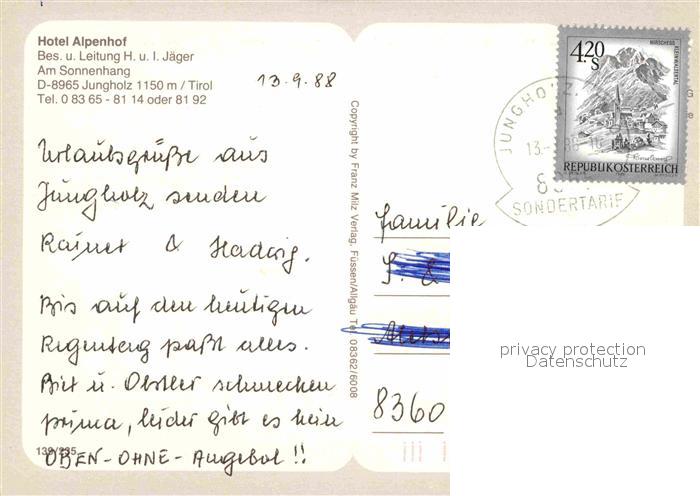 Hotel Alpenhof
Bes. u. Leitung H. u. I. Jäger
Am Sonnenhang
D-8965 Jungholz 1150 m / Tirol
Tel. 0 83 65 - 81 14 oder 81 92
13.9.88
Urlaubsgrüße aus
Jungholz senden
Rainer & Hadwig.
Bis auf den heutigen
Regentag paßt alles.
Bier u. Obstler schmecken
prima, leider gibt es kein
OBEN-OHNE-Angebot!!
139/235
Copyright by Franz Milz Verlag, Füssen/Allgäu Tel. 08362/6008
4.20
S
HIRSCHEGG
KLEINWALSERTAL
REPUBLIK ÖSTERREICH
JUNGHOLZ
SONDERTARIF
Familie
8360
privacy protection
Datenschutz